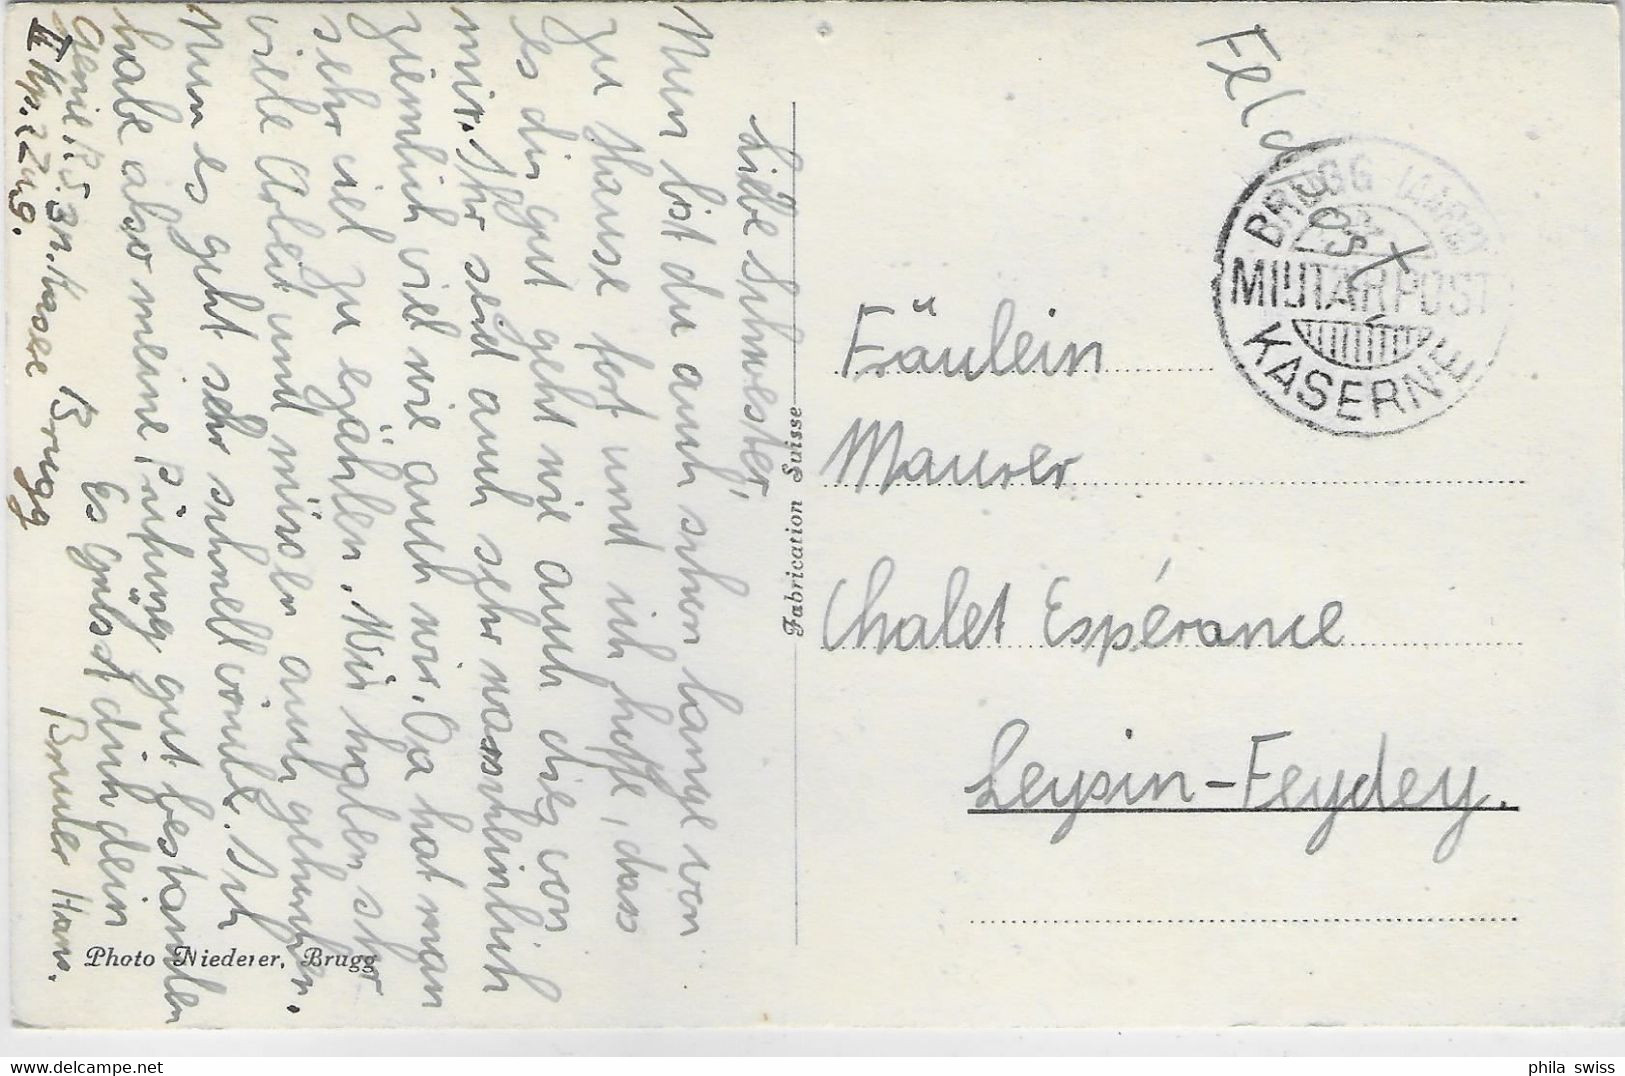 Feldpost
BRUGG (AARG)
MILITÄRPOST
KASERNE
Liebe Schwester,
Nun bist du auch schon lange von
zu Hause fort und ich hoffe, dass
es dir gut geht wie auch dies von
mir. Ihr seid auch sehr warscheinlich
ziemlich viel wie auch wir. Da hat man
sehr viel zu erzählen. Wir haben sehr
viele Arbeit und müssen auch gehorchen.
Nun es geht sehr schnell vorüber. Ich
habe also meine Prüfung gut bestanden
Es grüsst dich dein
Bruder Hans.
Genie R.S. 3n. Kaserne Brugg
II Kp. 2 Zug.
Fabrication Suisse
Photo Niederer, Brugg
Fräulein
Maurer
Chalet Espérance
Leysin-Feydey.
phila swiss